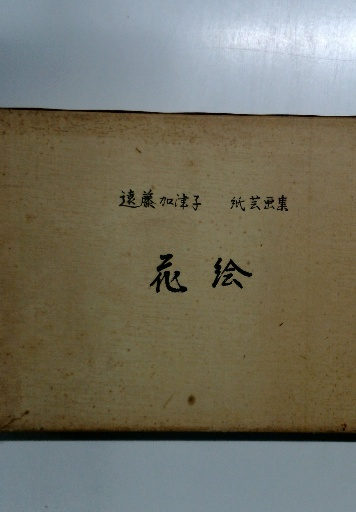 遠藤加津子 紙芸画集
花絵